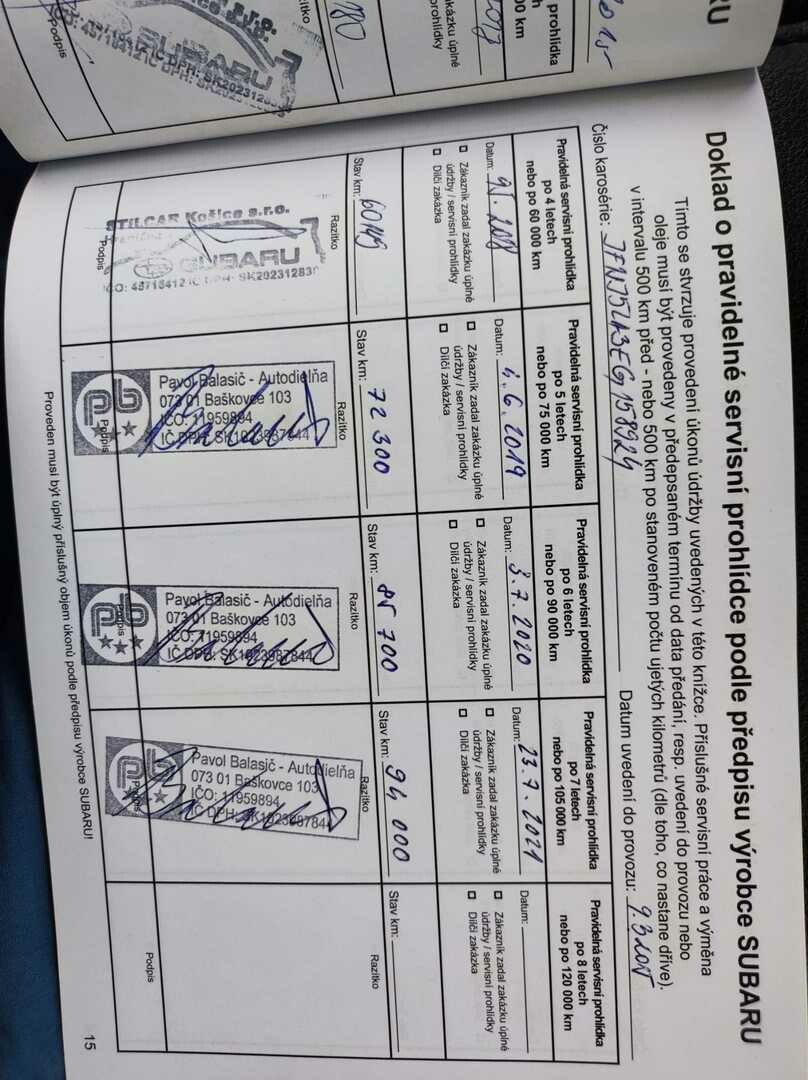 RU
2015-
prohlídka
h
00 km
2017
ákazku úplné
prohlídky
180
Razítko
s.r.o.
SUBARU
Podpis
Doklad o pravidelné servisní prohlídce podle předpisu výrobce SUBARU
Tímto se stvrzuje provedení úkonů údržby uvedených v této knížce. Příslušné servisní práce a výměna
oleje musí být provedeny v předepsaném termínu od data předání, resp. uvedení do provozu nebo
v intervalu 500 km před - nebo 500 km po stanoveném počtu ujetých kilometrů (dle toho, co nastane dříve).
Číslo karosérie: JFNJ5LA3EG158924 Datum uvedení do provozu: 9.3.2015
Pravidelná servisní prohlídka
po 4 letech
nebo po 60 000 km
Datum: 2018
Zákazník zadal zakázku úplné
údržby / servisní prohlídky
Dílčí zakázka
Stav km: 60145
Razítko
STILCAR Košice s.r.o.
SUBARU
Podpis
Pravidelná servisní prohlídka
po 5 letech
nebo po 75 000 km
Datum: 4.6.2019
Zákazník zadal zakázku úplné
údržby / servisní prohlídky
Dílčí zakázka
Stav km: 72 300
Razítko
Pavol Balasič - Autodielňa
073 01 Baškovce 103
IČO: 11959894
IČ DPH: SK1023987844
Podpis
Pravidelná servisní prohlídka
po 6 letech
nebo po 90 000 km
Datum: 3.7.2020
Zákazník zadal zakázku úplné
údržby / servisní prohlídky
Dílčí zakázka
Stav km: 85 700
Razítko
Pavol Balasič - Autodielňa
073 01 Baškovce 103
IČO: 11959894
IČ DPH: SK1023987844
Podpis
Pravidelná servisní prohlídka
po 7 letech
nebo po 105 000 km
Datum: 23.7.2021
Zákazník zadal zakázku úplné
údržby / servisní prohlídky
Dílčí zakázka
Stav km: 94 000
Razítko
Pavol Balasič - Autodielňa
073 01 Baškovce 103
IČO: 11959894
IČ DPH: SK1023987844
Podpis
Pravidelná servisní prohlídka
po 8 letech
nebo po 120 000 km
Datum:
Zákazník zadal zakázku úplné
údržby / servisní prohlídky
Dílčí zakázka
Stav km:
Razítko
Podpis
Proveden musí být úplný příslušný objem úkonů podle předpisu výrobce SUBARU!
15